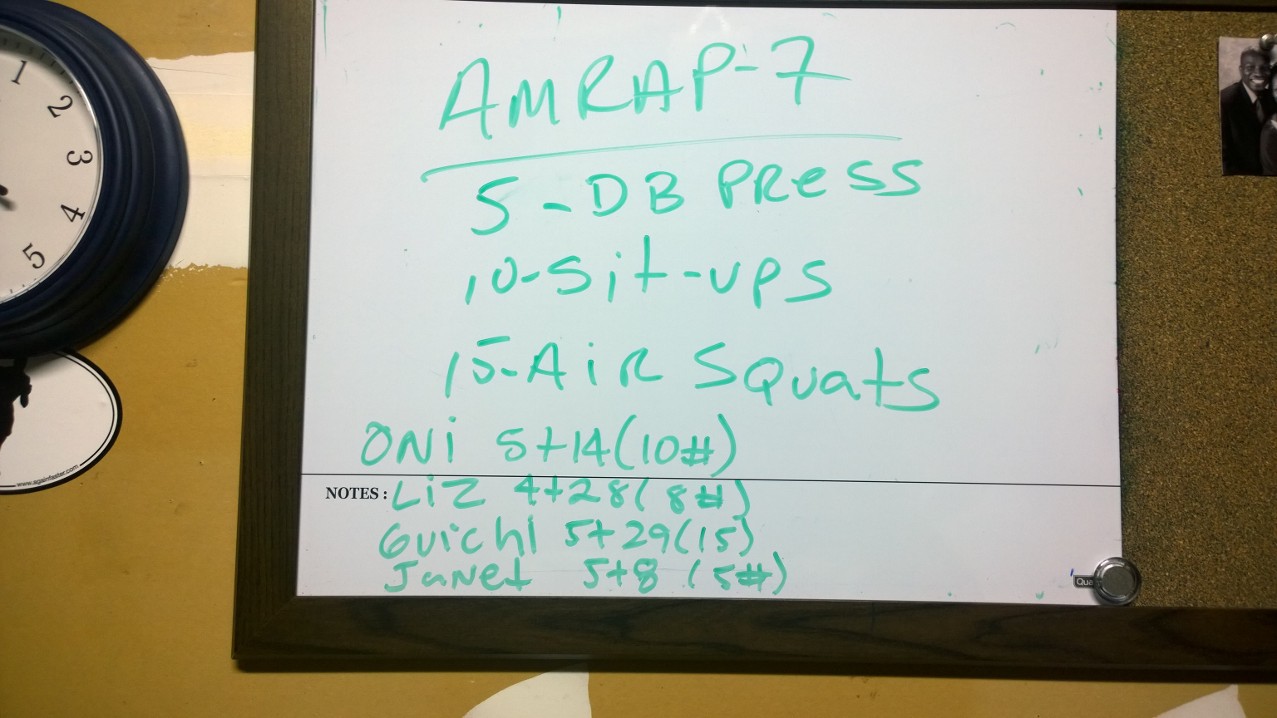 1
2
3
4
5
AMRAP-7
5-DB PRESS
10-Sit-ups
15-AiR Squats
ONi 5+14(10#)
NOTES: LiZ 4+28(8#)
Guichi 5+29(15)
JaNet 5+8 (5#)
www.againfaster.com
Qua